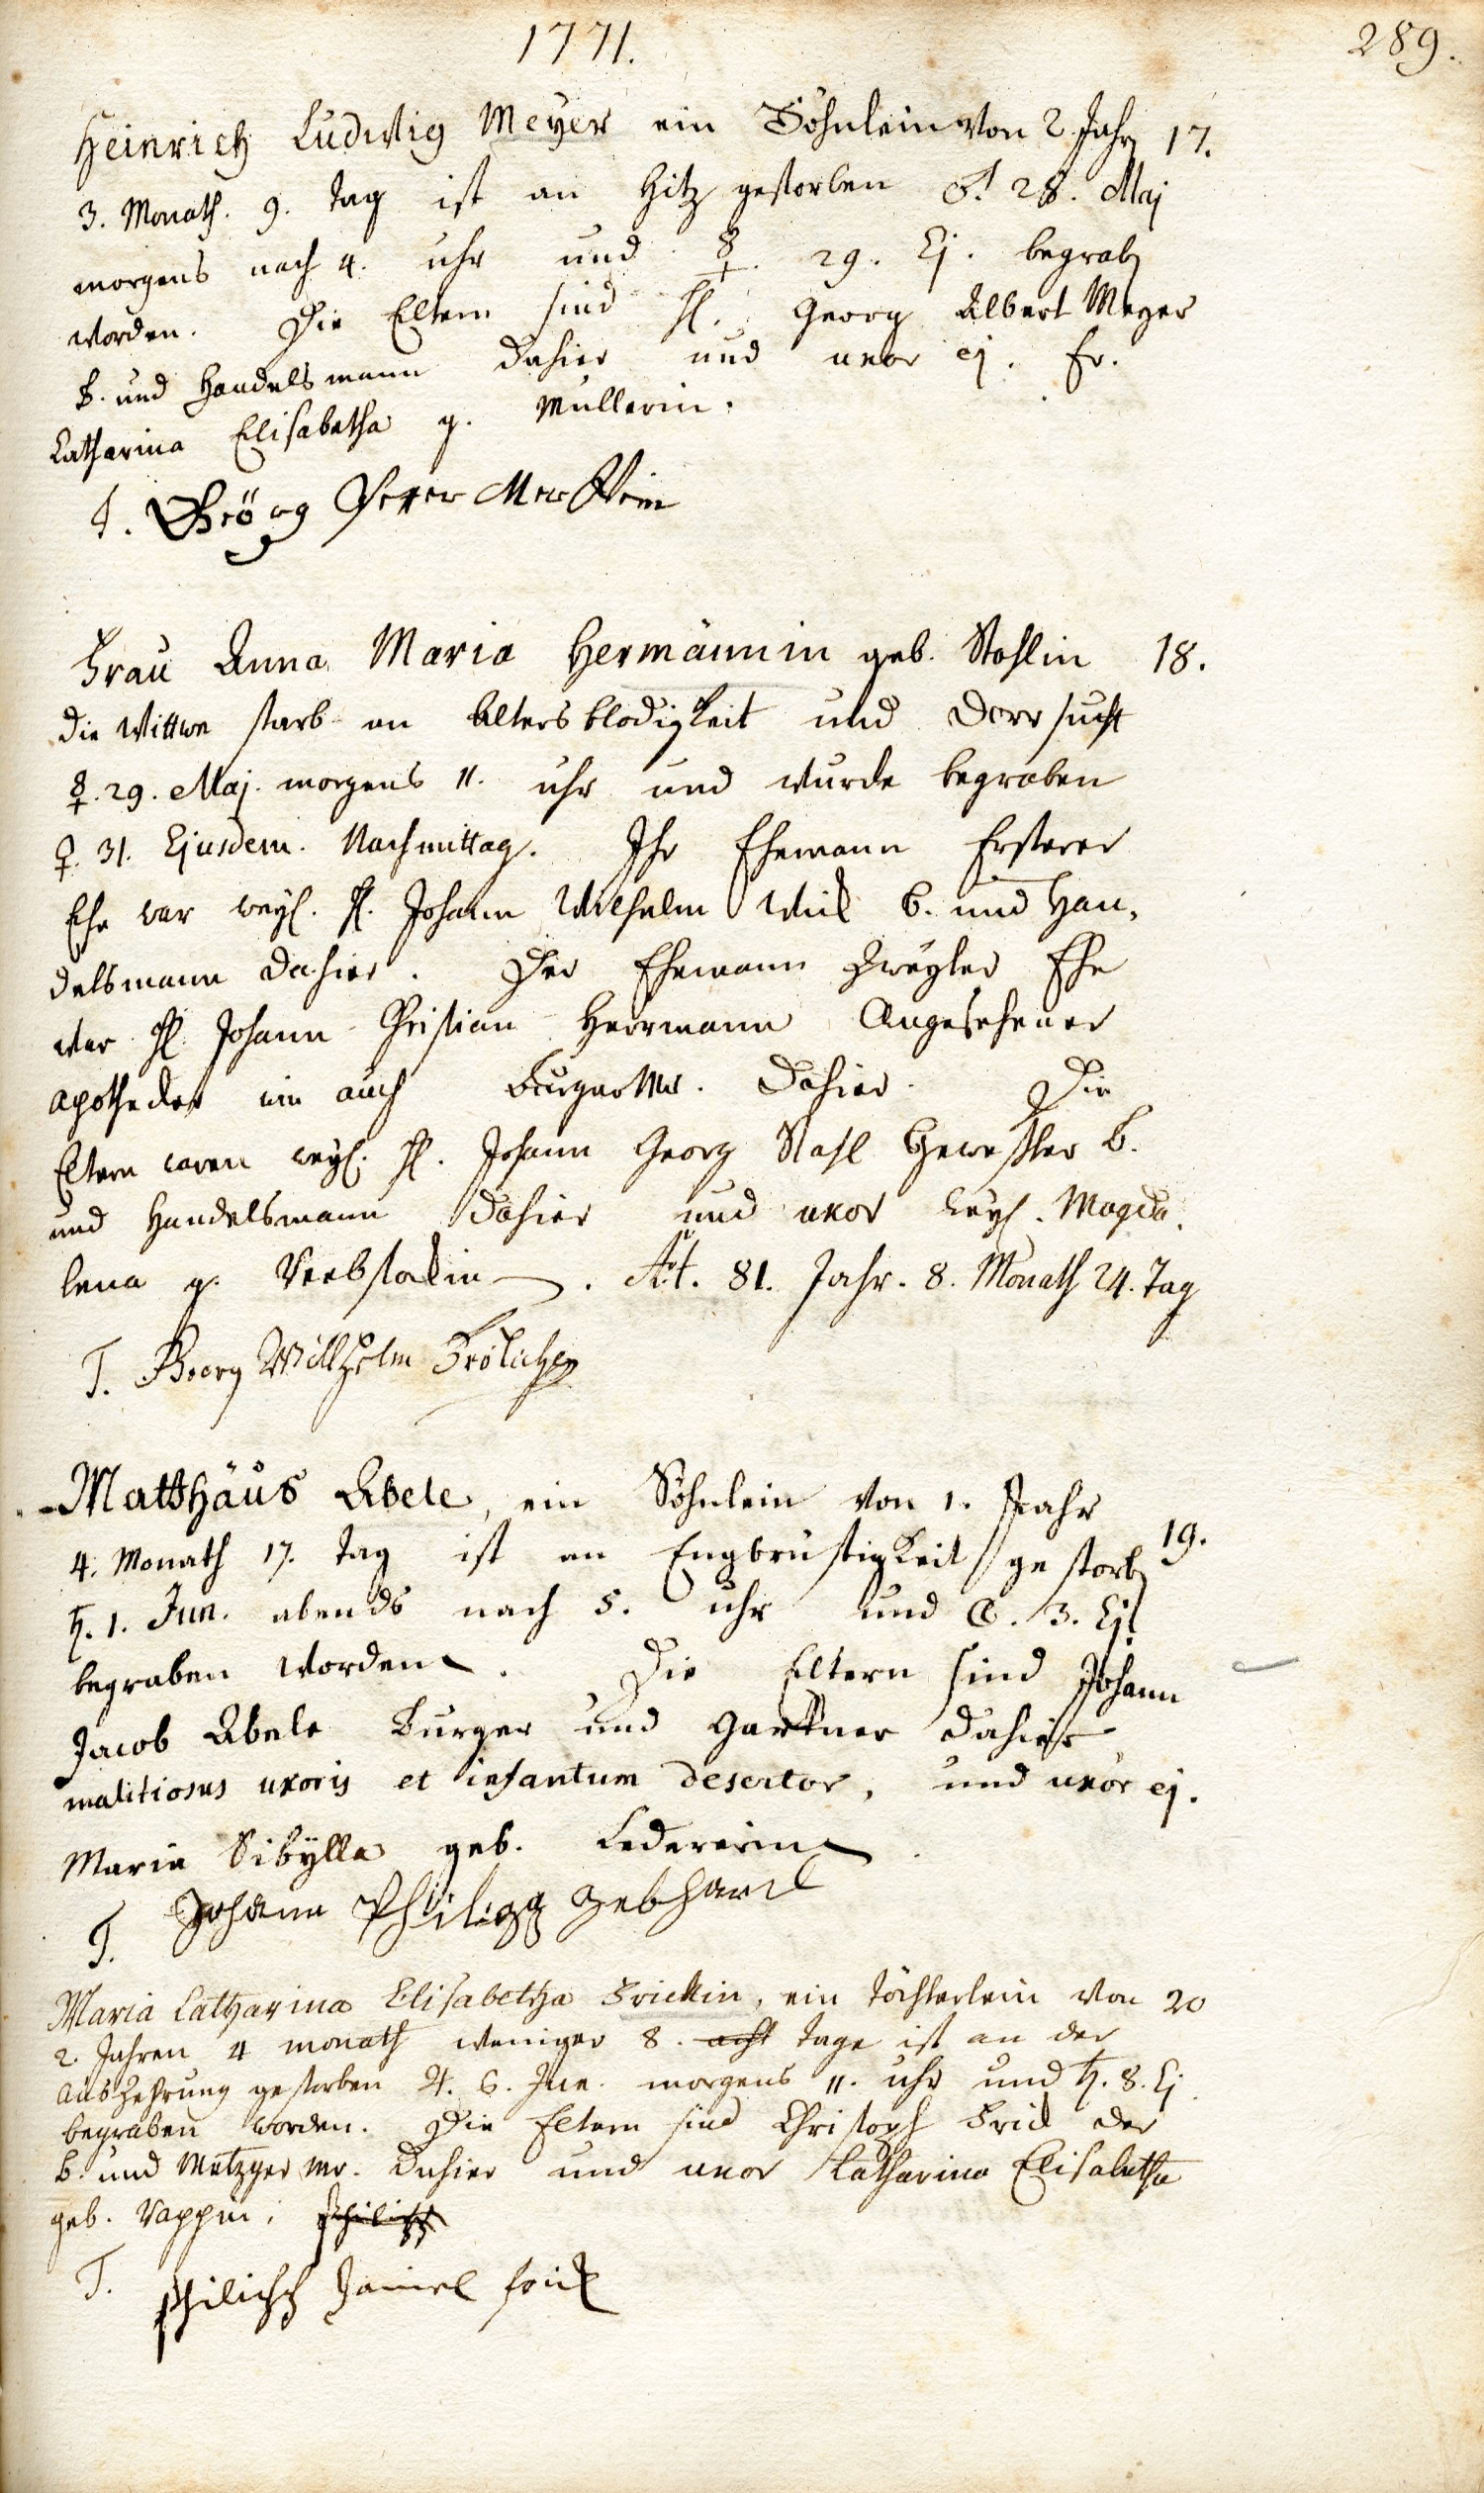 1771.
289.
Heinrich Ludwig Meyer ein Söhnlein von 2 Jahr 17.
3. Monath. 9. tag ist an Hitz gestorben ♂. 28. Maj
morgens nach 4. uhr und ☿. 29. Ej. begrab
worden. Die Eltern sind H. Georg Albert Meyer
b. und Handelsmann dahier und uxor ej. Fr.
Catharina Elisabetha g. Mullerin.
T. Geörg Peter
Frau Anna Maria Hermännin geb. Stahlin 18.
die Wittwe starb an Altersblodigkeit und Dorrsucht
☿. 29. Maj. morgens 11. uhr und wurde begraben
♀. 31. Ejusdem. Nachmittag. Ihr Ehemann Ersterer
Ehe war weyl. H. Johann Wilhelm b. und Han,
delsmann dahier. Der Ehemann Zweyter Ehe
war H Johann Christian Herrmann Angesehener
apotheker wie auch dahier. Die
Eltern waren weyl. H. Johann Georg Stahl Gewester b.
und Handelsmann dahier und uxor weyl. Magda,
lena g. . Æt. 81. Jahr. 8. Monath 24. Tag
T. Georg Willhelm Frölich
Matthäus Abele, ein Söhnlein von 1. Jahr
4. Monath 17. tag ist an Engbrüstigkeit gestorb 19.
♄. 1. Jun. abends nach 5. uhr und ☾. 3. Ej.
begraben worden. Die Eltern sind Johann
Jacob Abele Burger und Garttner dahier
malitiosus uxoris et infantum desertor, und uxor ej.
Maria Sibÿlla geb. Ledererin.
T. Johann Philipp Gebhard
Maria Catharina Elisabetha Frickin, ein Töchterlein von 20
2. Jahren 4 monath weniger 8. acht tage ist an der
Auszehrung gestorben ♃. 6. Jun. morgens 11. uhr und ♄. 8. Ej.
begraben worden. Die Eltern sind Christoph Frick der
b. und Metzger Mr. dahier und uxor Catharina Elisabetha
geb. Rappin. Philipp
T. Philipp Daniel Frick